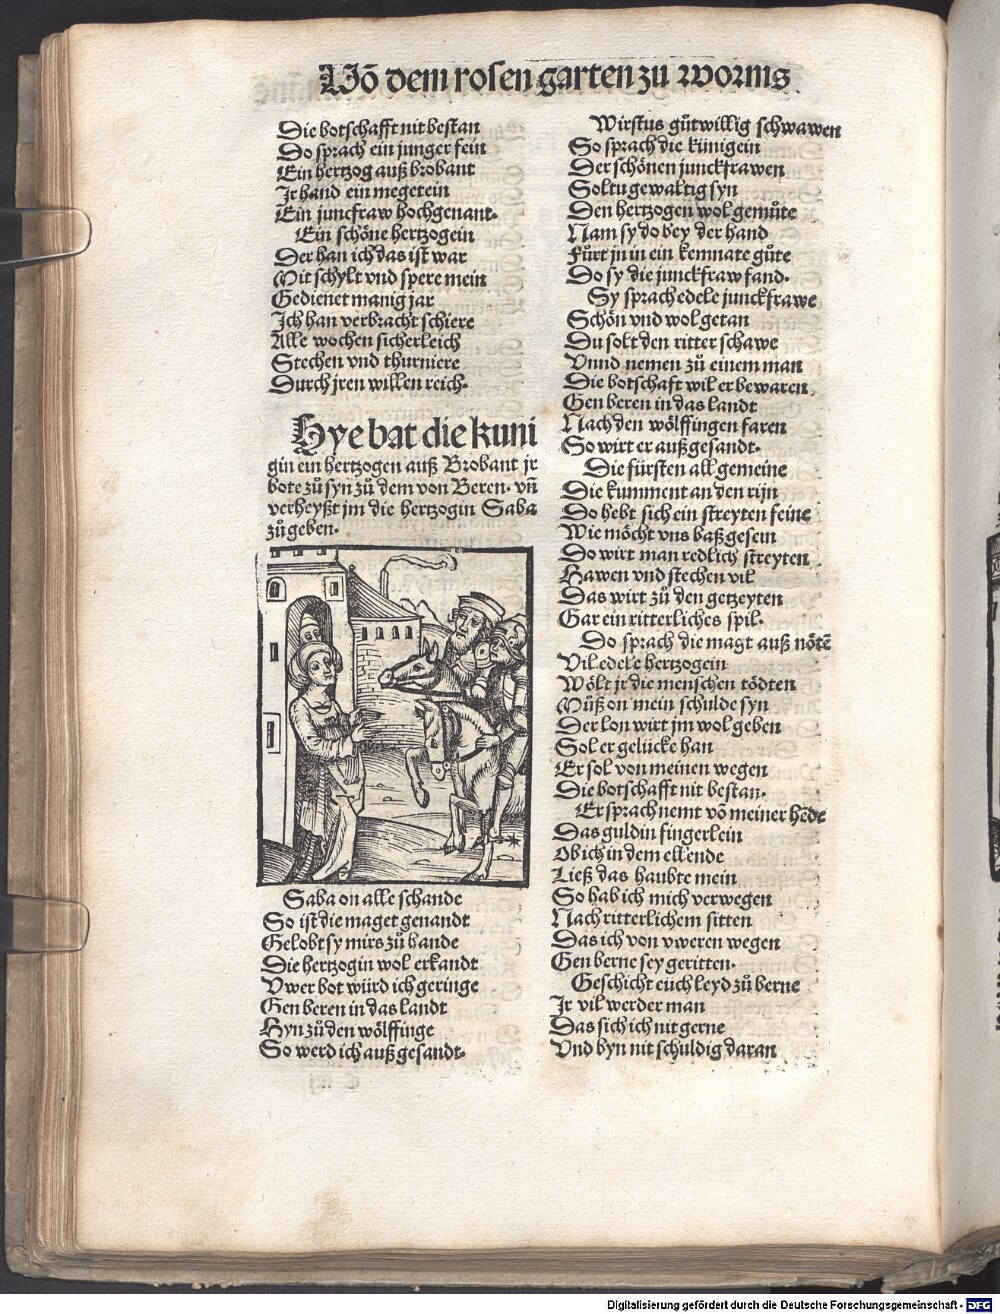 Võ dem rosen garten zu worms
Die botschafft nit bestan
Do sprach ein junger fein
Ein hertzog auß brobant
Jr hand ein megetein
Ein juncfraw hochgenant.
Ein schöne hertzogein
Der han ich das ist war
Mit schylt vnd spere mein
Gedienet manig jar
Ich han verbracht schiere
Alle wochen sicherleich
Stechen vnd thurniere
Durch jren willen reich.
Hye bat die kuni
gin ein hertzogen auß Brobant jr
bote zů syn zů dem von Beren. vñ
verheyßt jm die hertzogin Saba
zů geben.
Saba on alle schande
So ist die maget genandt
Gelobt sy mirs zů hande
Die hertzogin wol erkandt
Vwer bot würd ich geringe
Gen beren in das landt
Hyn zů den wölffinge
So werd ich auß gesandt.
Wirstus gůtwillig schwawen
So sprach die künigein
Der schönen junckfrawen
Soltu gewaltig syn
Den hertzogen wol gemůte
Nam sy do bey der hand
Fůrt jn in ein kemnate gůte
Do sy die junckfraw fand.
Sy sprach edele junckfrawe
Schön vnd wol getan
Du solt den ritter schawe
Vnnd nemen zů einem man
Die botschaft wil er bewaren
Gen beren in das landt
Nach den wölffingen faren
So wirt er außgesandt.
Die fürsten all gemeine
Die kumment an den rijn
Do hebt sich ein streyten feine
Wie möcht vns baß gesein
Do wirt man redlich streyten
Hawen vnd stechen vil
Das wirt zů den getzeyten
Gar ein ritterliches spil.
Do sprach die magt auß nötē
Vil edele hertzogein
Wölt jr die menschen tödten
Můß on mein schulde syn
Der lon wirt jm wol geben
Sol er gelücke han
Er sol von meinen wegen
Die botschafft nit bestan.
Er sprach nemt võ meiner hēde
Das guldin fingerlein
Ob ich in dem ellende
Ließ das haubte mein
So hab ich mich verwegen
Nach ritterlichem sitten
Das ich von vweren wegen
Gen berne sey geritten.
Geschicht eüch leyd zů berne
Jr vil werder man
Das sich ich nit gerne
Vnd byn nit schuldig daran
Digitalisierung gefördert durch die Deutsche Forschungsgemeinschaft - DFG